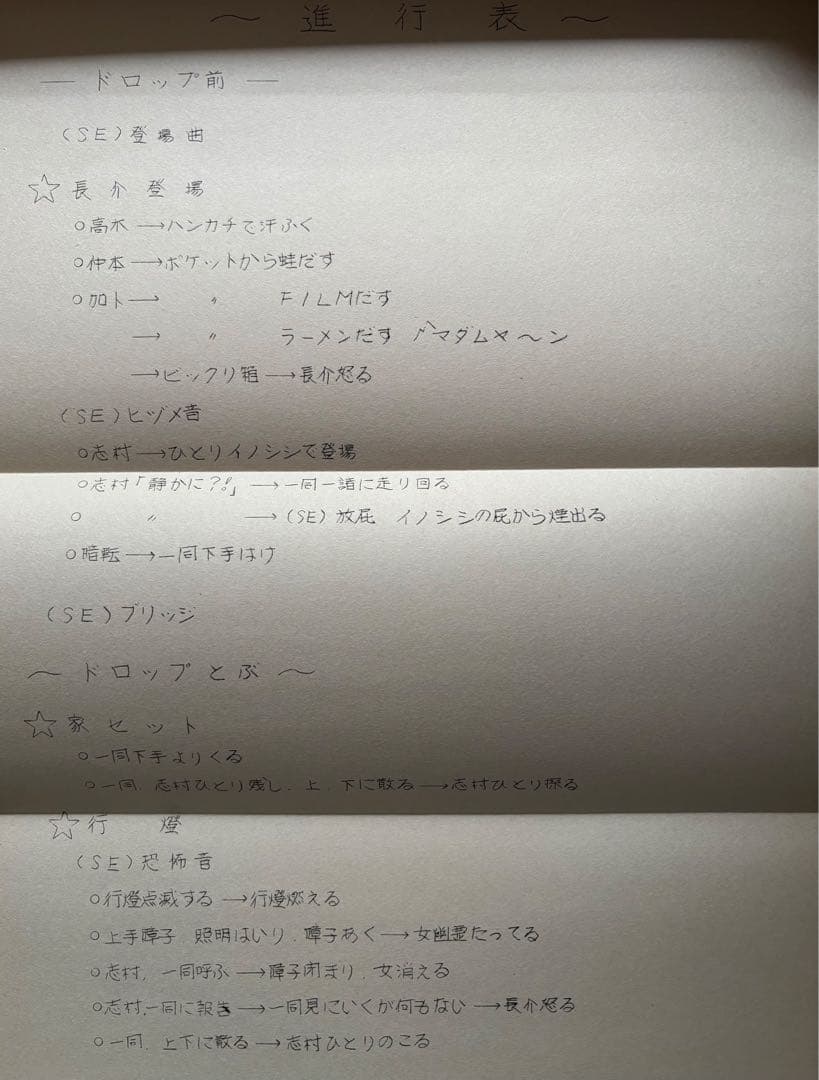 ～ 進行表 ～
― ドロップ前 ―
(SE)登場曲
☆長介登場
○高木→ハンカチで汗ふく
○仲本→ポケットから蛙だす
○加ト→ 〃 FILMだす
→ 〃 ラーメンだす 〽マダムヤ～ン
→ビックリ箱→長介怒る
(SE)ヒヅメ音
○志村→ひとりイノシシで登場
○志村「静かに?!」→一同一諸に走り回る
○ 〃 →(SE)放屁 イノシシの屁から煙出る
○暗転→一同下手はけ
(SE)ブリッジ
～ドロップとぶ～
☆家セット
○一同下手よりくる
○一同、志村ひとり残し、上、下に散る→志村ひとり探る
☆行 燈
(SE)恐怖音
○行燈点滅する→行燈燃える
○上手障子 照明はいり、障子あく→女幽霊たってる
○志村、一同呼ぶ→障子閉まり、女消える
○志村、一同に報告→一同見にいくが何もない→長介怒る
○一同、上下に散る→志村ひとりのこる